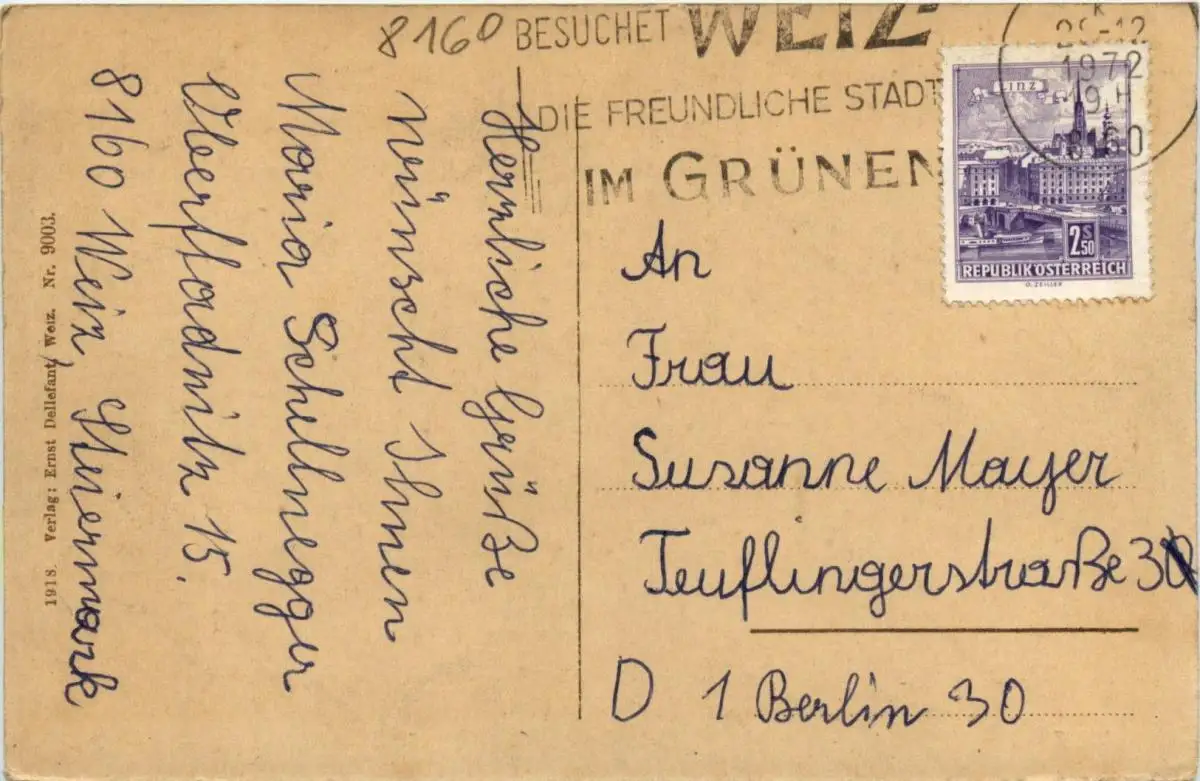 8160
BESUCHET WEIZ
DIE FREUNDLICHE STADT
IM GRÜNEN
K
28-12
1972
19 H
8160
LINZ
2 S 50
REPUBLIK ÖSTERREICH
O. ZEILLER
Herrliche Grüße
wünscht Ihnen
Maria Schellnegger
Oberfladnitz 15.
8160 Weiz, Steiermark
1918. Verlag: Ernst Dellefant, Weiz. Nr. 9003.
An
Frau
Susanne Mayer
D 1 Berlin 30